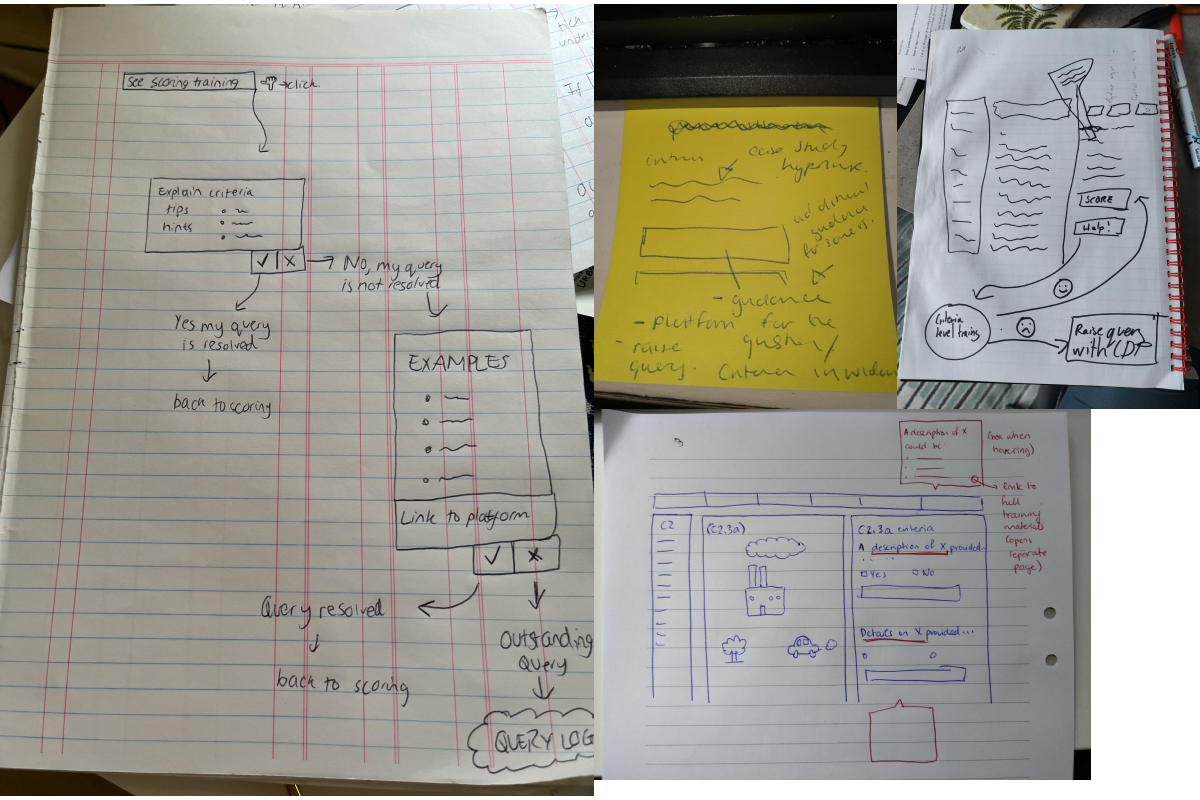 See scoring training
click
Explain criteria
tips
hints
No, my query
is not resolved
Yes my query
is resolved
back to scoring
EXAMPLES
Link to platform
Query resolved
back to scoring
Outstanding
Query
QUERY LOG
tick
case study
hyperlink
additional
guidance
for scorers.
- guidance
- platform for the
- raise
query. Criteria in
SCORE
Help!
Criteria
level
Raise query
with CDP
A description of X
could be:
(box when
hovering)
link to
full
training
material
(opens
separate
page)
C2
(C2.3a)
C2.3a criteria
A description of X provided...
Yes
No
Details on X provided...